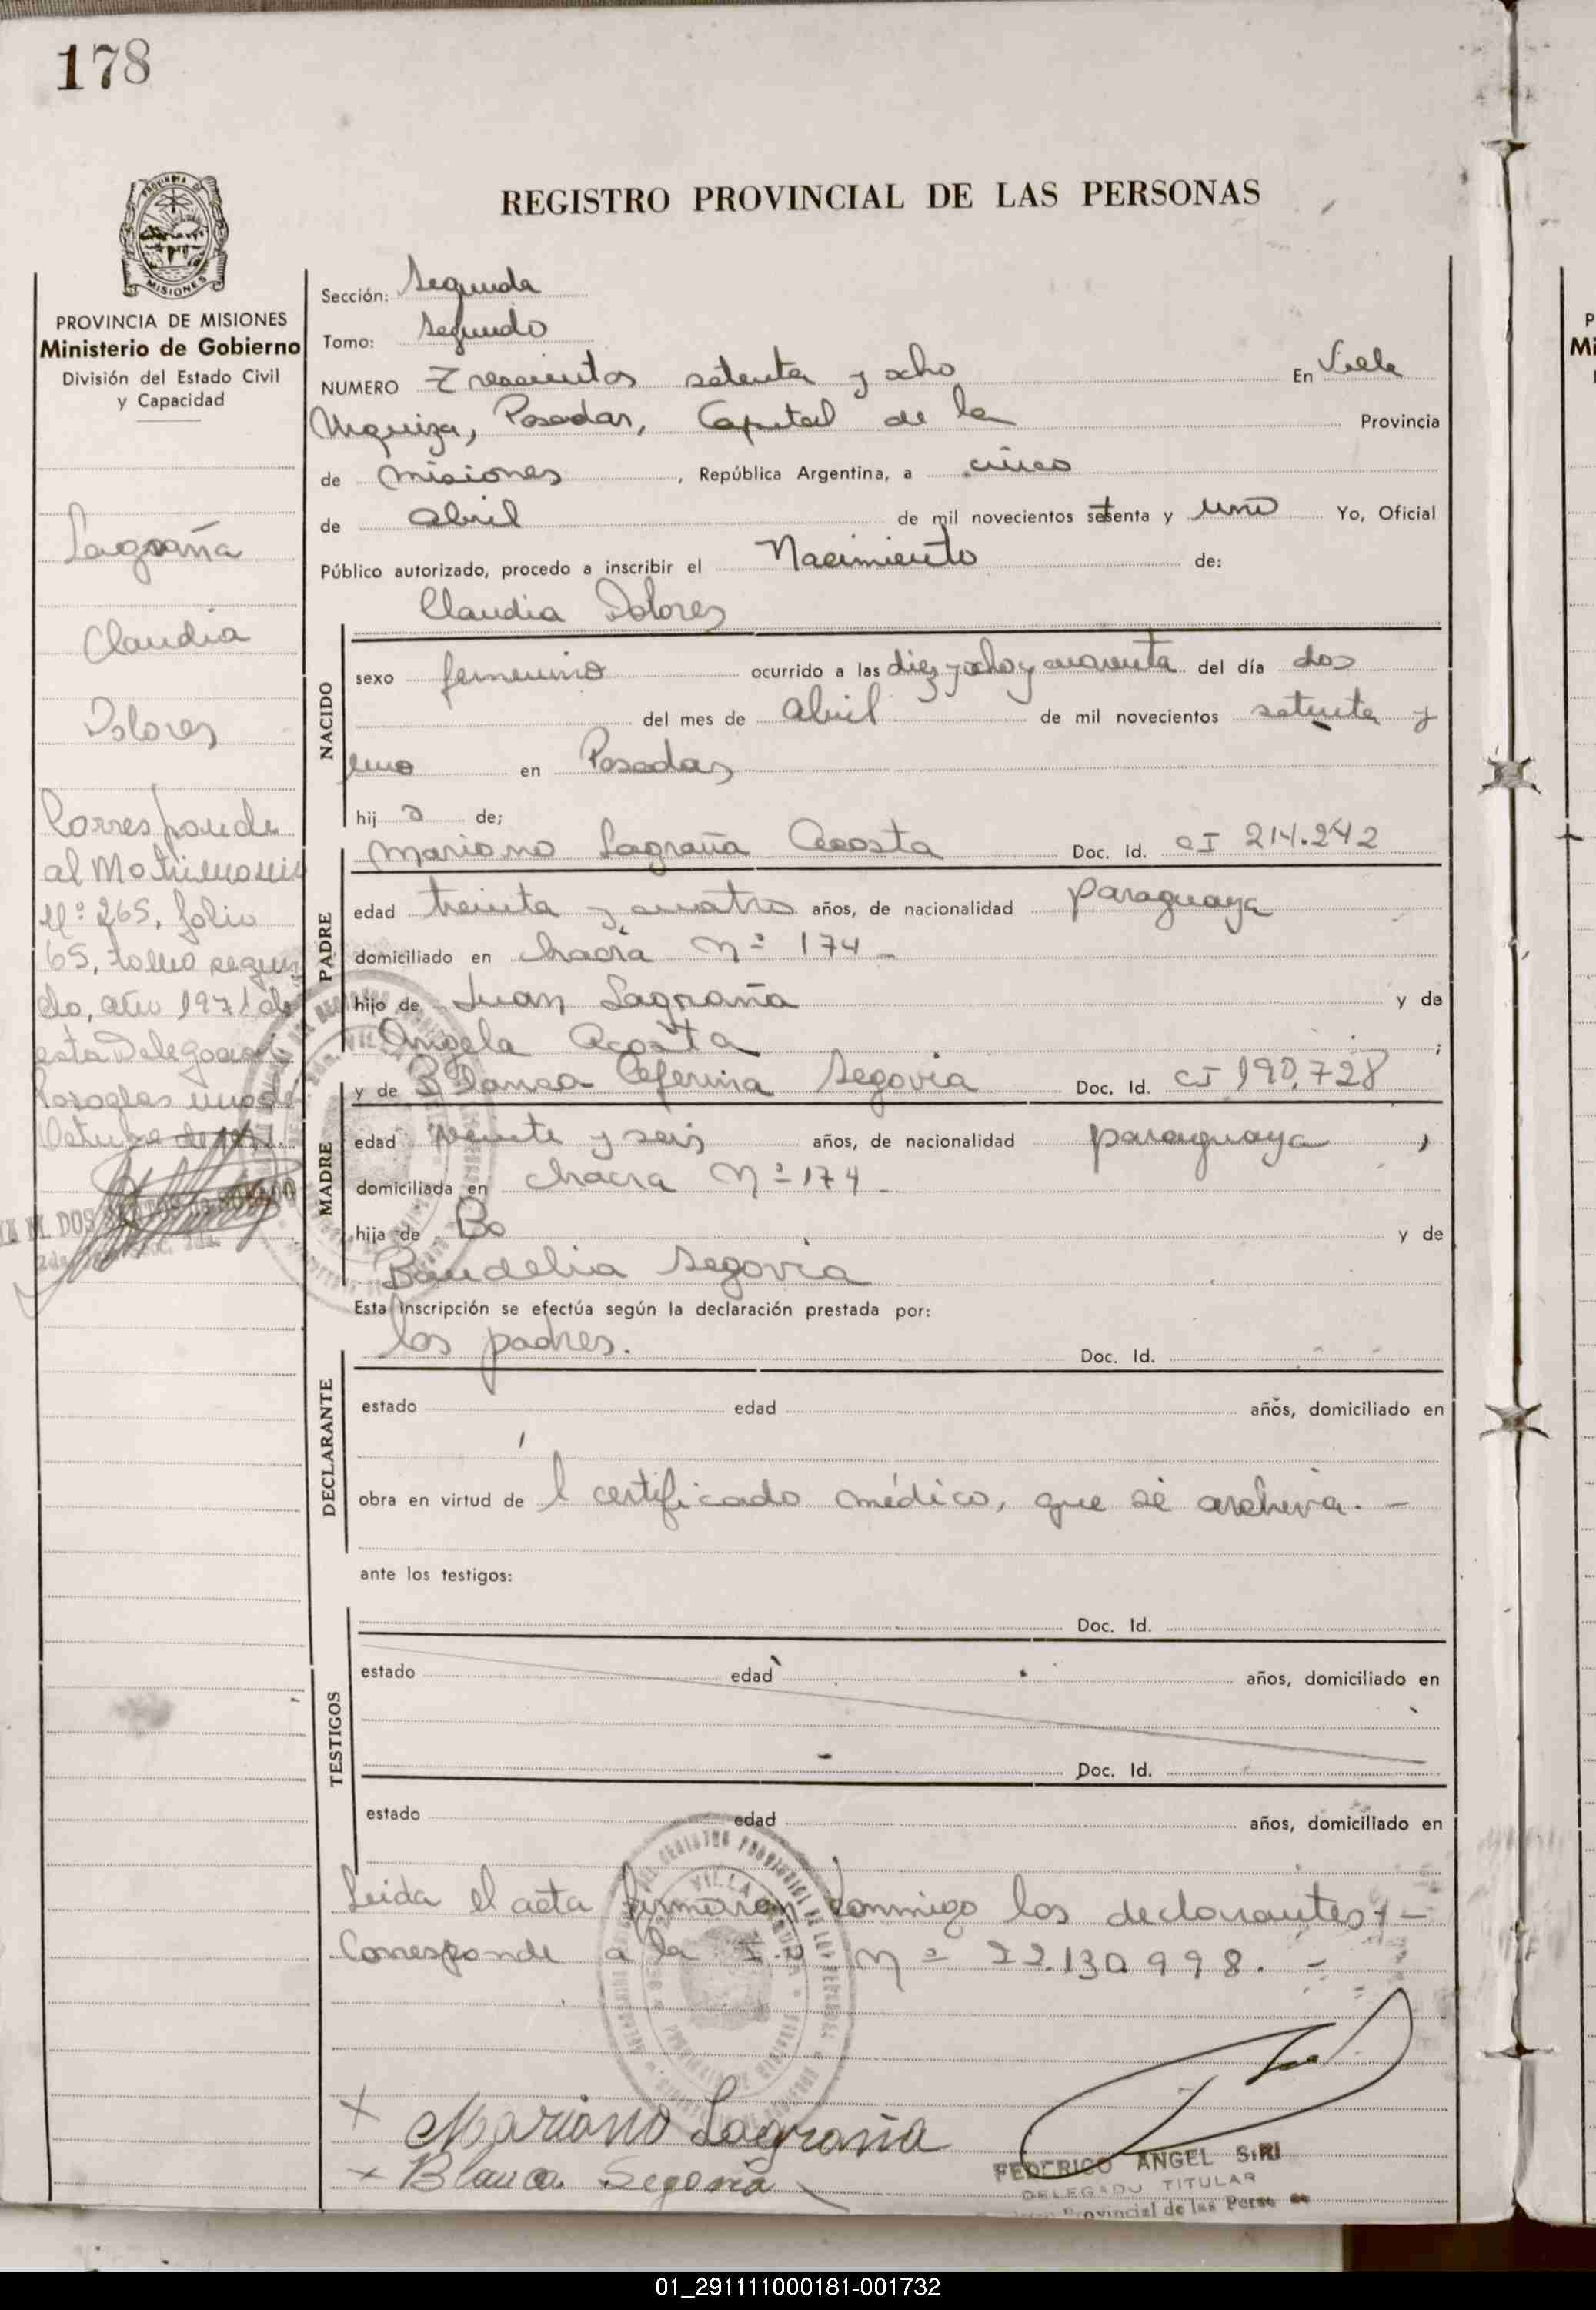 178
REGISTRO PROVINCIAL DE LAS PERSONAS
MISIONES
PROVINCIA DE MISIONES
Ministerio de Gobierno
División del Estado Civil
y Capacidad
Lagraña
Claudia
Dolores
Corresponde
al Matrimonio
Nº 265, folio
65, tomo segun
do, año 1971 de
esta Delegación
Posadas uno de
Octubre de
Sección: Segunda
Tomo: Segundo
NUMERO Trescientos setenta y ocho En Villa
Urquiza, Posadas, Capital de la Provincia
de Misiones, República Argentina, a cinco
de Abril de mil novecientos setenta y uno Yo, Oficial
Público autorizado, procedo a inscribir el Nacimiento de:
Claudia Dolores
NACIDO
sexo femenino ocurrido a las diez y ocho y cuarenta del día dos
del mes de Abril de mil novecientos setenta y
uno en Posadas
hij a de;
Mariano Lagraña Acosta Doc. Id. CI 214.242
PADRE
edad treinta y cuatro años, de nacionalidad paraguaya
domiciliado en chacra Nº 174 -
hijo de Juan Lagraña y de
Angela Acosta ;
y de Blanca Ceferina Segovia Doc. Id. CI 190.728
MADRE
edad veinte y seis años, de nacionalidad paraguaya ,
domiciliada en chacra Nº 174 -
hija de Bo y de
Baudelia Segovia
Esta inscripción se efectúa según la declaración prestada por:
los padres. Doc. Id.
DECLARANTE
estado edad años, domiciliado en
obra en virtud de l certificado médico, que se archiva. -
ante los testigos:
Doc. Id.
TESTIGOS
estado edad años, domiciliado en
Doc. Id.
estado edad años, domiciliado en
Leida el acta firmaron conmigo los declarantes, -
Corresponde a la Nº 22.130.998. -
Mariano Lagraña
Blanca Segovia
FEDERICO ANGEL SIRI
DELEGADO TITULAR
Provincial de las Perso
01_291111000181-001732